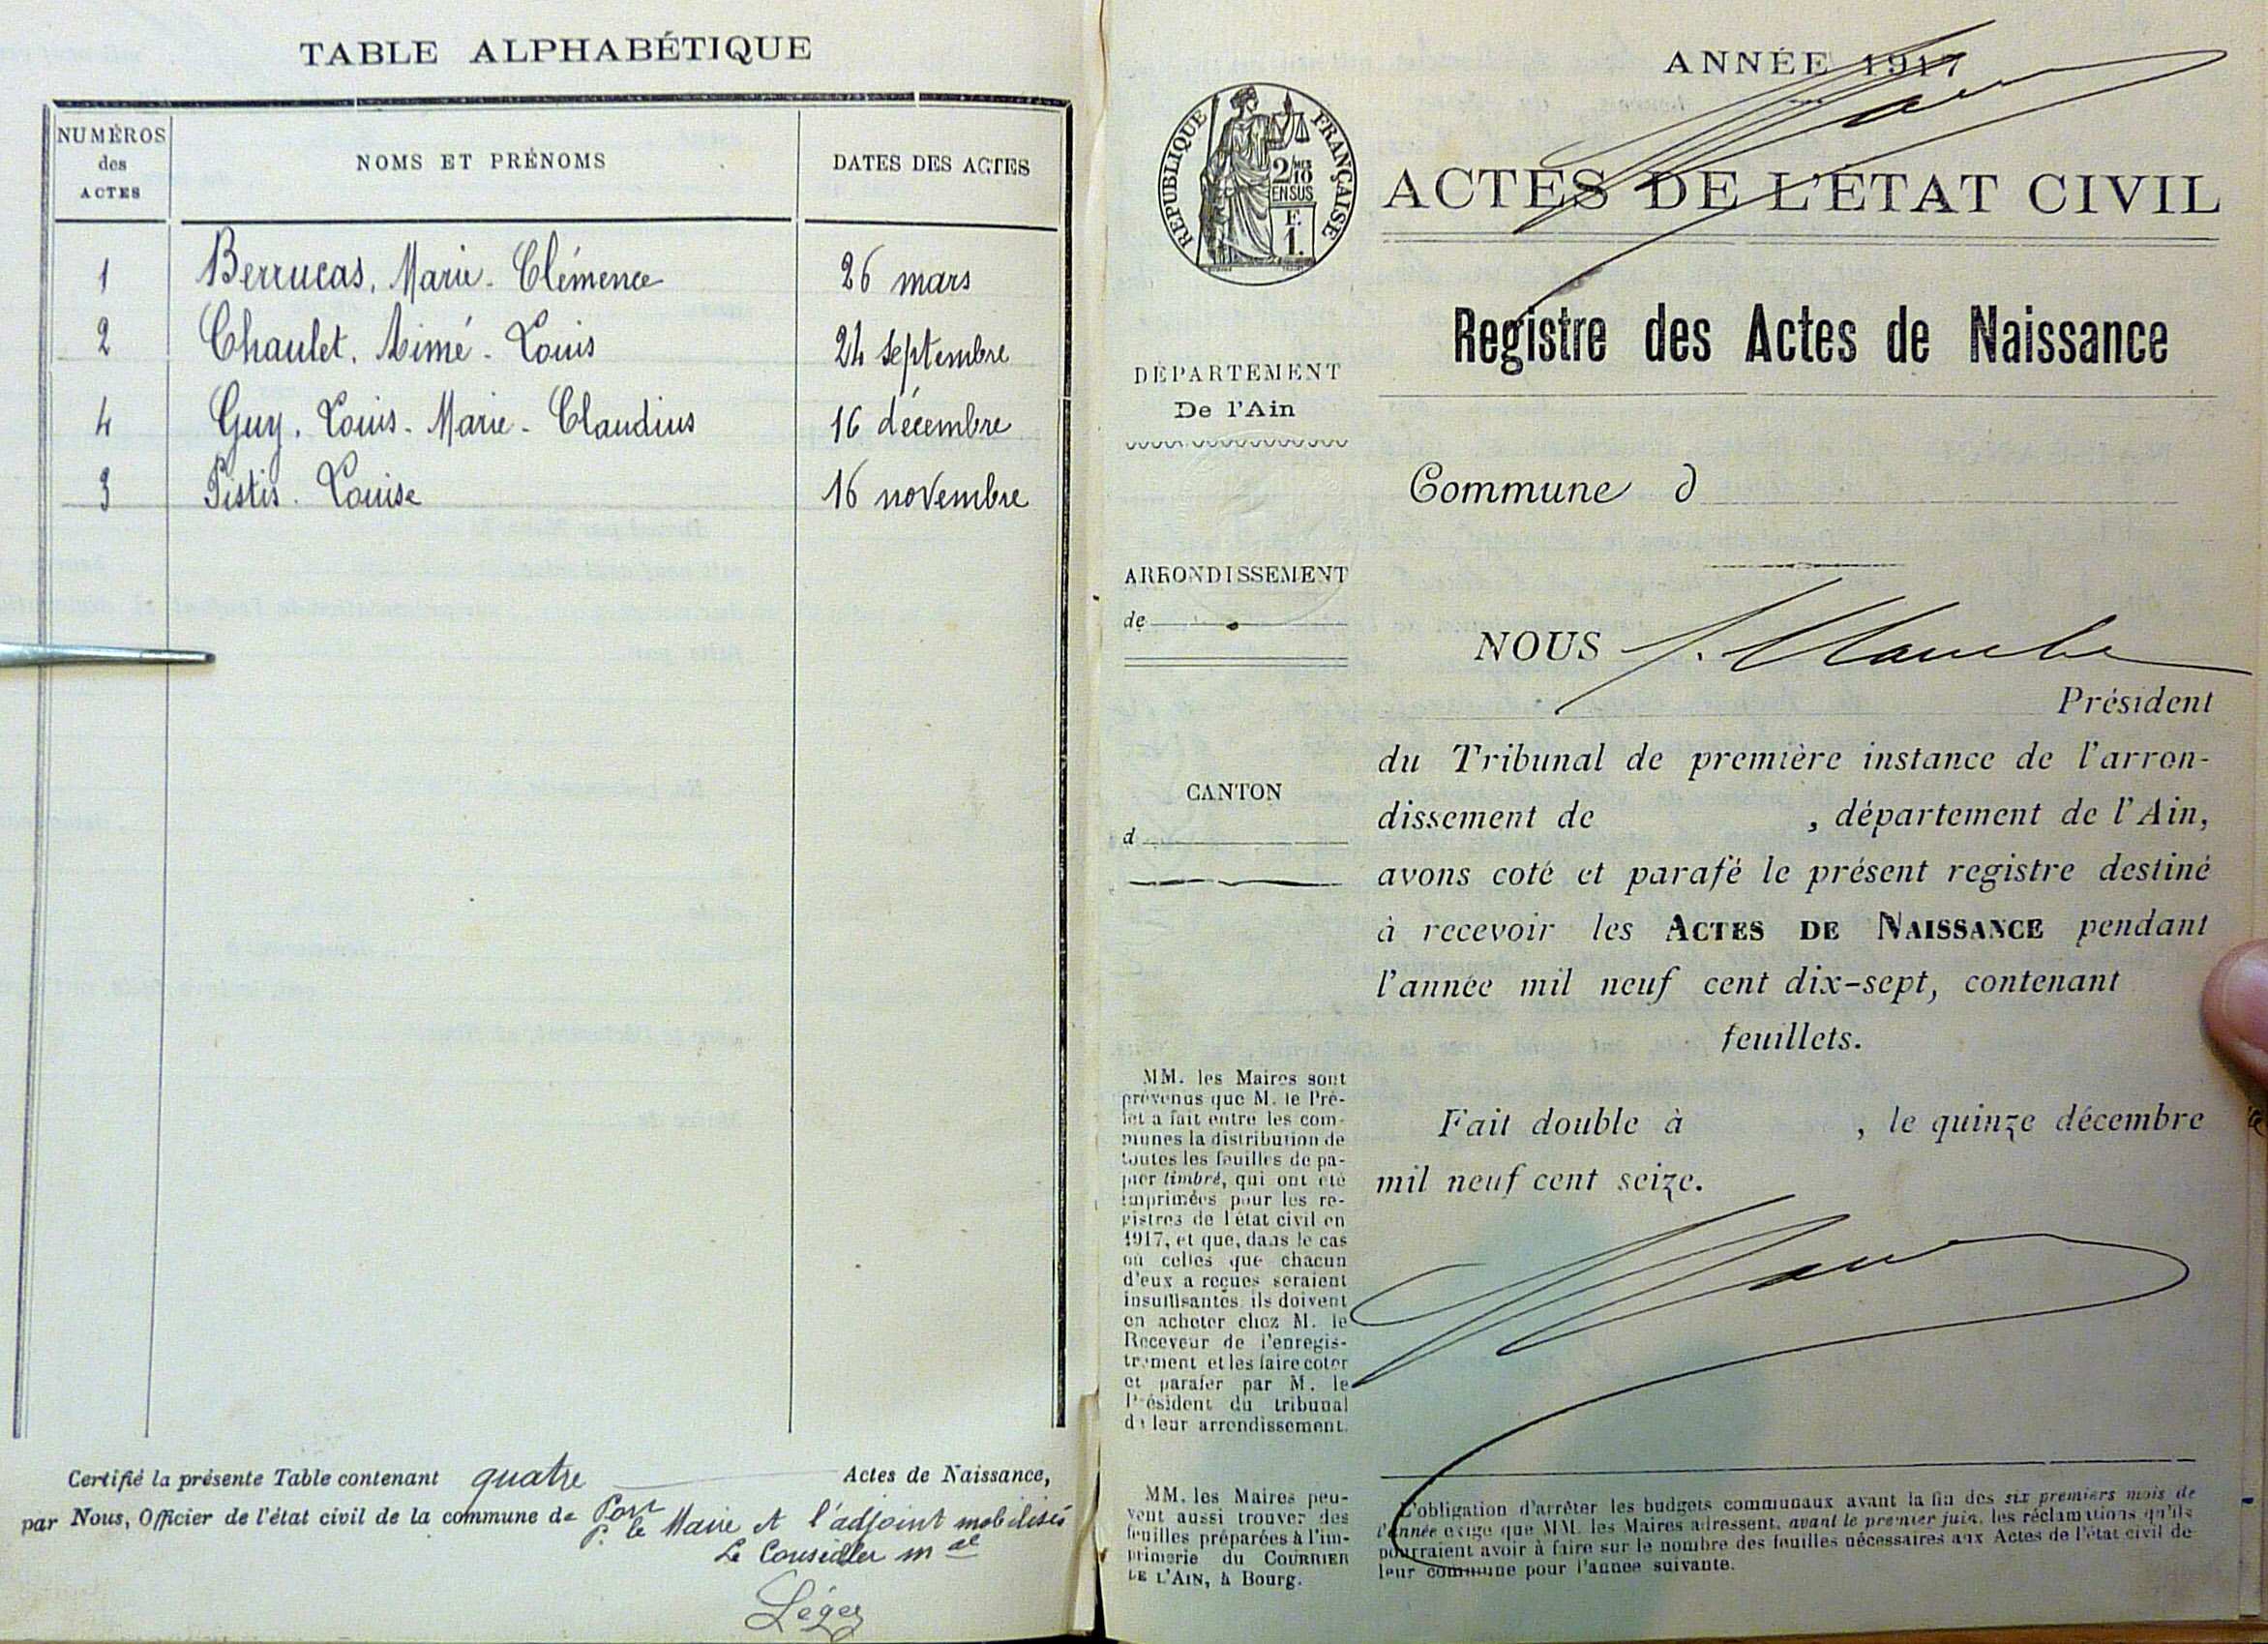 TABLE ALPHABÉTIQUE
NUMÉROS
des
ACTES
NOMS ET PRÉNOMS
DATES DES ACTES
1 Berrucas, Marie - Clémence 26 mars
2 Chaulet, Aimé - Louis 24 septembre
4 Guy, Louis - Marie - Claudius 16 décembre
3 Pistis - Louise 16 novembre
Certifié la présente Table contenant quatre Actes de Naissance,
par Nous, Officier de l'état civil de la commune de Port
P. le Maire et l'adjoint mobilisés
Le Conseiller mal
Léger
ANNÉE 1917
RÉPUBLIQUE FRANÇAISE
2/10
EN SUS
E.
1.
ACTES DE L'ÉTAT CIVIL
Registre des Actes de Naissance
DÉPARTEMENT
De l'Ain
Commune d
ARRONDISSEMENT
de
NOUS
Président
du Tribunal de première instance de l'arron-
dissement de , département de l'Ain,
avons coté et parafé le présent registre destiné
à recevoir les ACTES DE NAISSANCE pendant
l'année mil neuf cent dix-sept, contenant
feuillets.
Fait double à , le quinze décembre
mil neuf cent seize.
CANTON
d
MM. les Maires sont
prévenus que M. le Pré-
fet a fait entre les com-
munes la distribution de
toutes les feuilles de pa-
pier timbré, qui ont été
imprimées pour les re-
gistres de l'état civil en
1917, et que, dans le cas
où celles que chacun
d'eux a reçues seraient
insuffisantes, ils doivent
en acheter chez M. le
Receveur de l'enregis-
trement et les faire coter
et parafer par M. le
Président du tribunal
de leur arrondissement.
MM. les Maires peu-
vent aussi trouver des
feuilles préparées à l'im-
primerie du COURRIER
DE L'AIN, à Bourg.
L'obligation d'arrêter les budgets communaux avant la fin des six premiers mois de
l'année exige que MM. les Maires adressent, avant le premier juin, les réclamations qu'ils
pourraient avoir à faire sur le nombre des feuilles nécessaires aux Actes de l'état civil de
leur commune pour l'année suivante.